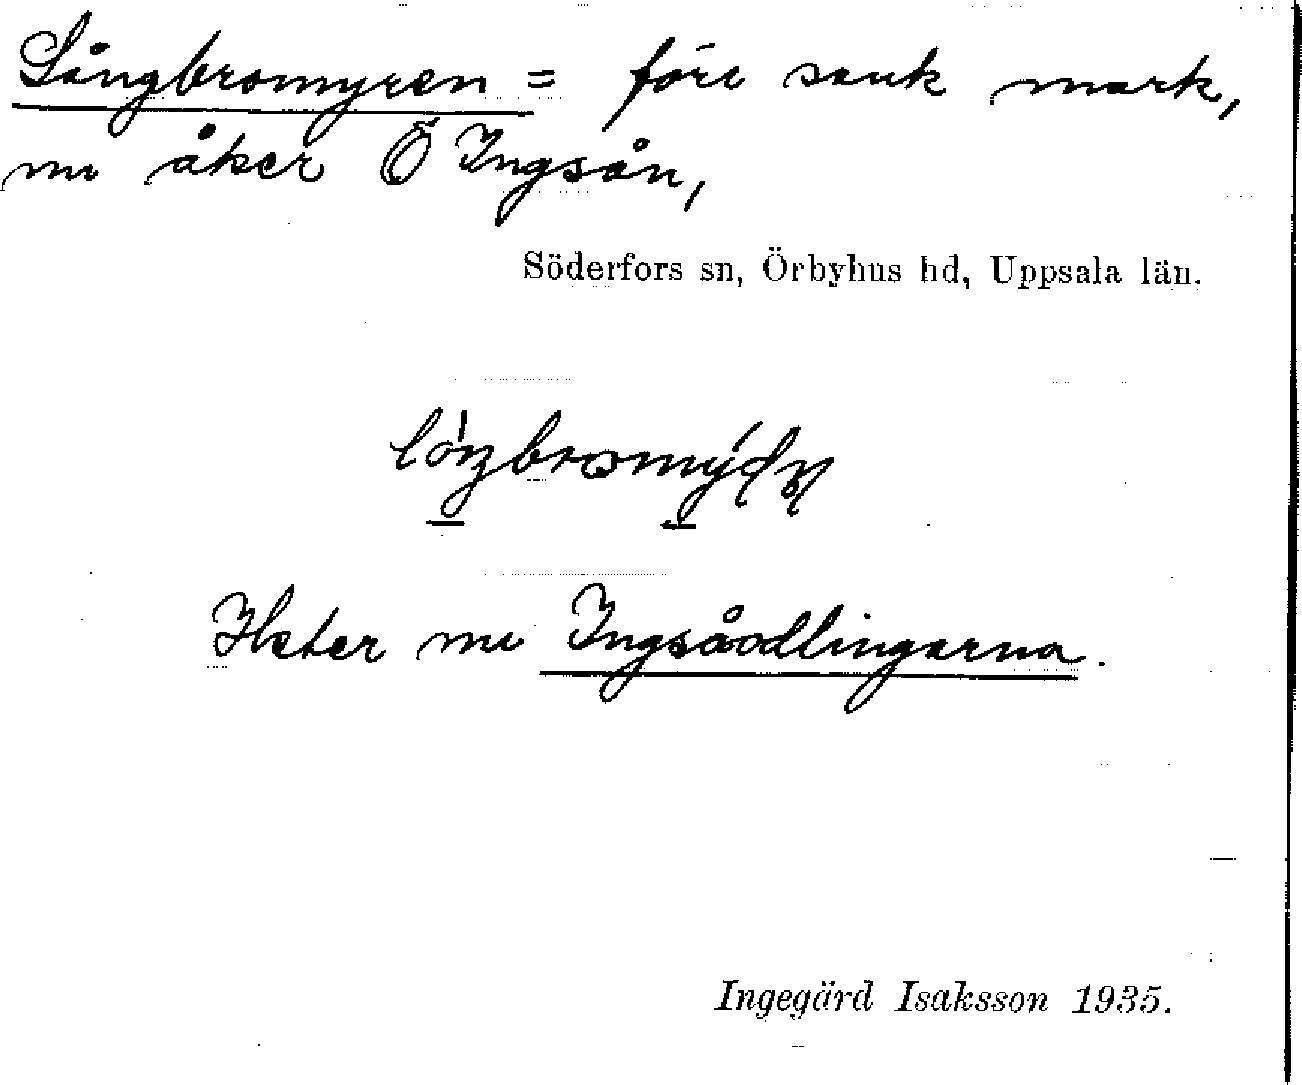 Långbromyren = förr sank mark,
nu åker Ö Ingsån,
Söderfors sn, Örbyhus hd, Uppsala län.
Heter nu Ingsåodlingarna.
Ingegärd Isaksson 1935.